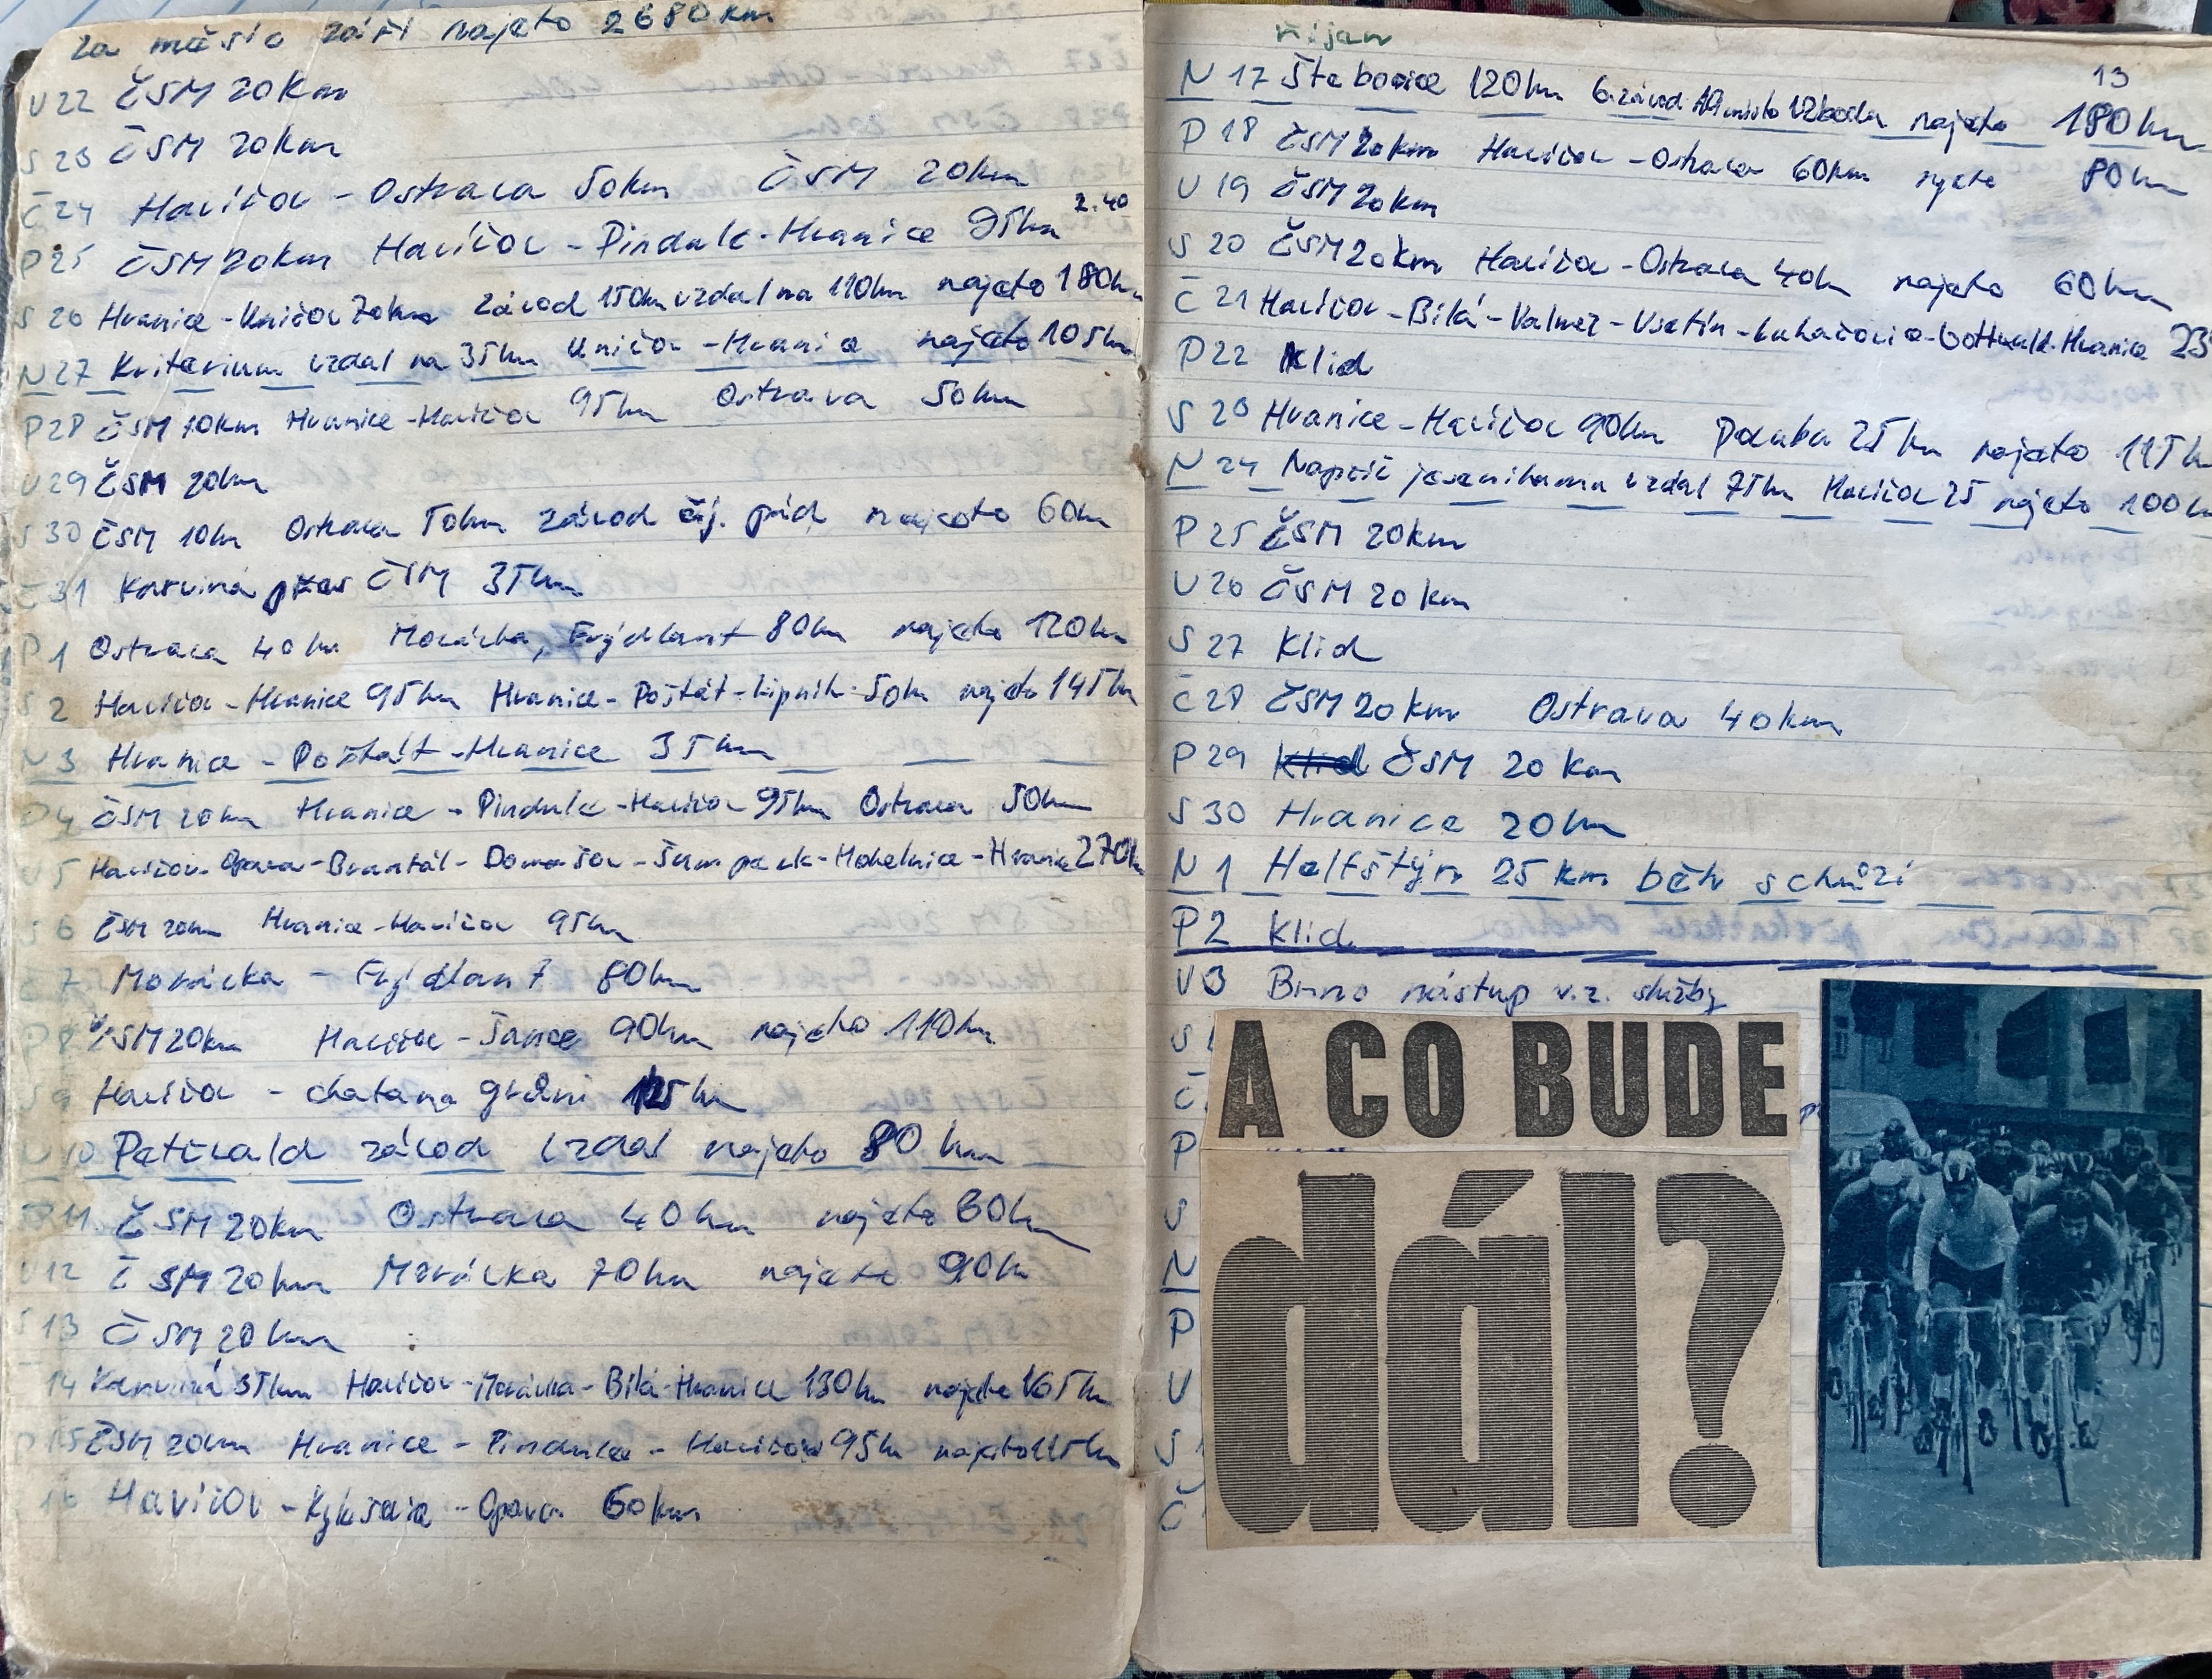 za měsíc září najeto 2680 km
U 22 ČSM 20 km
S 23 ČSM 20 km
Č 24 Havířov - Ostrava 50 km ČSM 20 km
P 25 ČSM 20 km Havířov - Pindula - Hranice 95 km 2.40
S 26 Hranice - Uničov 70 km závod 150 km vzdal na 110 km najeto 180 km
N 27 Kriterium vzdal na 35 km Uničov - Hranice najeto 105 km
P 28 ČSM 10 km Hranice - Havířov 95 km Ostrava 50 km
U 29 ČSM 20 km
S 30 ČSM 10 km Ostrava 50 km závod pád najeto 60 km
Č 31 Karviná přes ČSM 35 km
P 1 Ostrava 40 km Morávka, Frýdlant 80 km najeto 120 km
S 2 Havířov - Hranice 95 km Hranice - Potštát - Lipník 50 km najeto 145 km
N 3 Hranice - Potštát - Hranice 35 km
P 4 ČSM 20 km Hranice - Pindula - Havířov 95 km Ostrava 50 km
U 5 Havířov - Opava - Bruntál - Domašov - Šumperk - Mohelnice - Hranice 270 k
S 6 ČSM 20 km Hranice - Havířov 95 km
Č 7 Morávka - Frýdlant 80 km
P 8 ČSM 20 km Havířov - Šance 90 km najeto 110 km
S 9 Havířov - chata na 125 km
10 Petřvald závod vzdal najeto 80 km
P 11 ČSM 20 km Ostrava 40 km najeto 60 km
U 12 ČSM 20 km Morávka 70 km najeto 90 km
S 13 ČSM 20 km
14 Karviná 35 km Havířov - Morávka - Bílá - Hranice 130 km najeto 165 km
P 15 ČSM 20 km Hranice - Pindula - Havířov 95 km najeto 115 km
16 Havířov - Kyjovice - Opava 60 km
říjen
13
N 17 Štebovice 120 km 6. závod 19 místo 12 bodů najeto 180 km
P 18 ČSM 20 km Havířov - Ostrava 60 km najeto 80 km
U 19 ČSM 20 km
S 20 ČSM 20 km Havířov - Ostrava 40 km najeto 60 km
Č 21 Havířov - Bílá - Valmez - Vsetín - Luhačovice - Gottwald - Hranice 23
P 22 Klid
S 23 Hranice - Havířov 90 km Poruba 25 km najeto 115 k
N 24 Napříč vzdal 75 km Havířov 25 najeto 100 k
P 25 ČSM 20 km
U 26 ČSM 20 km
S 27 Klid
Č 28 ČSM 20 km Ostrava 40 km
P 29 Klid ČSM 20 km
S 30 Hranice 20 km
N 1 Helfštýn 25 km běh schůzí
P 2 Klid
U 3 Brno nástup v.z. služby
S
Č
P
S
N
P
U
S
Č
A CO BUDE
dál?